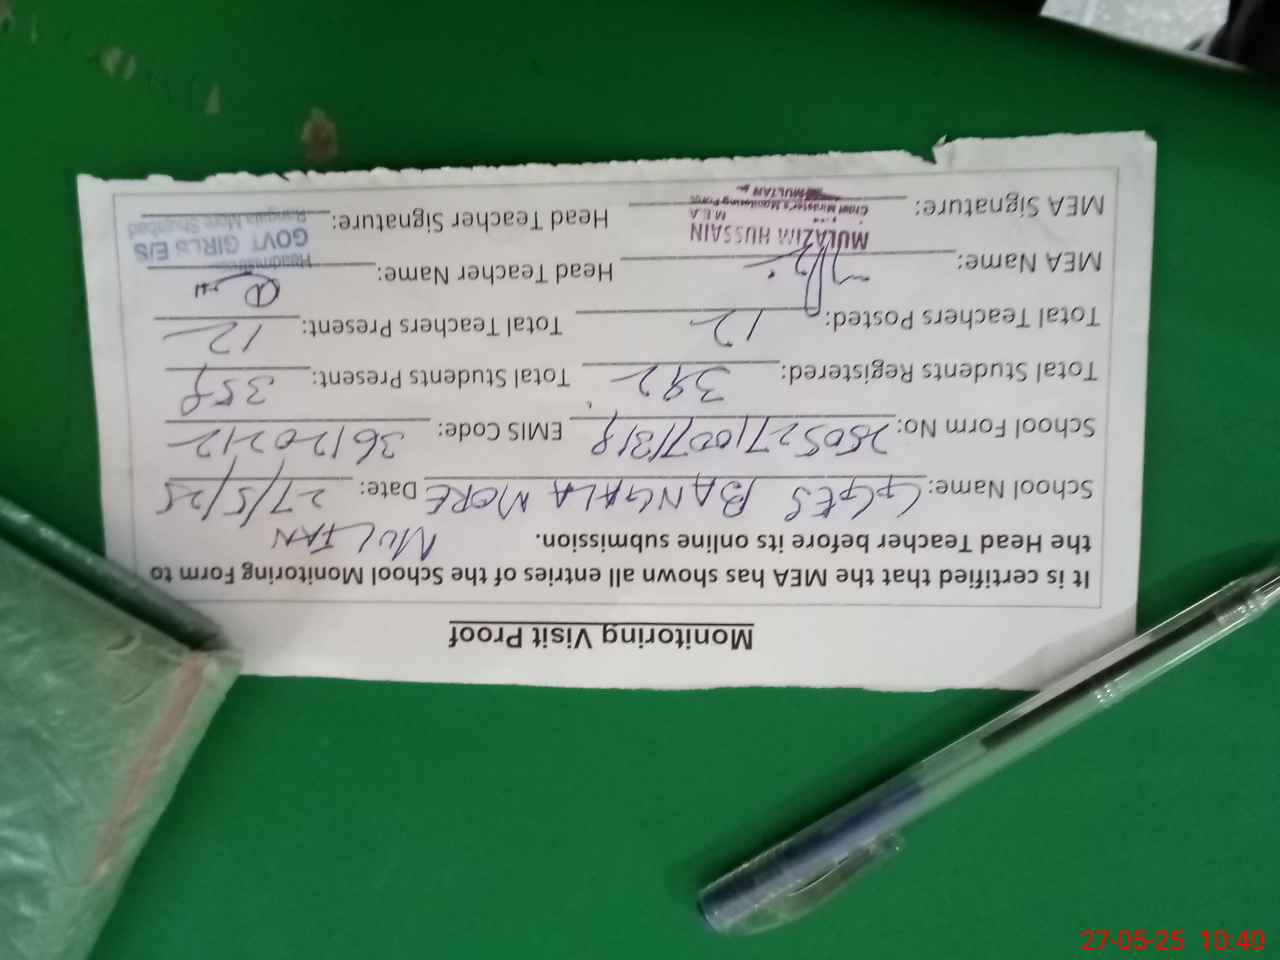 Monitoring Visit Proof
It is certified that the MEA has shown all entries of the School Monitoring Form to
the Head Teacher before its online submission. MULTAN
School Name: GGES BANGALA MORE Date: 27/5/25
School Form No: EMIS Code: 36120212
Total Students Registered: 392 Total Students Present: 359
Total Teachers Posted: 12 Total Teachers Present: 12
MEA Name: Head Teacher Name:
MULAZIM HUSSAIN Headmistress
M.E.A GOVT GIRLS E/S
Chief Minister's Monitoring Force
MULTAN
MEA Signature: Head Teacher Signature:
27-05-25 10:40